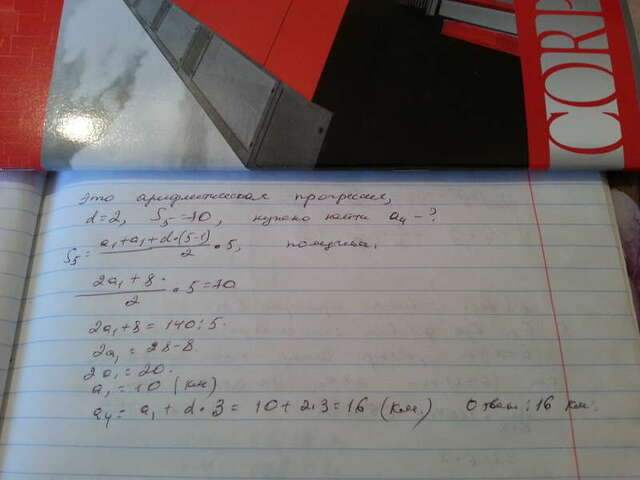 CORP
Это арифметическая прогрессия,
d=2, S₅=70, нужно найти a₄ - ?
S₅ = (a₁+a₁+d•(5-1))/2 • 5, получим:
(2a₁+8)/2 • 5 = 70
2a₁+8 = 140:5.
2a₁ = 28-8.
2a₁ = 20.
a₁ = 10 (км)
a₄ = a₁ + d•3 = 10 + 2•3 = 16 (км.) Ответ: 16 км.